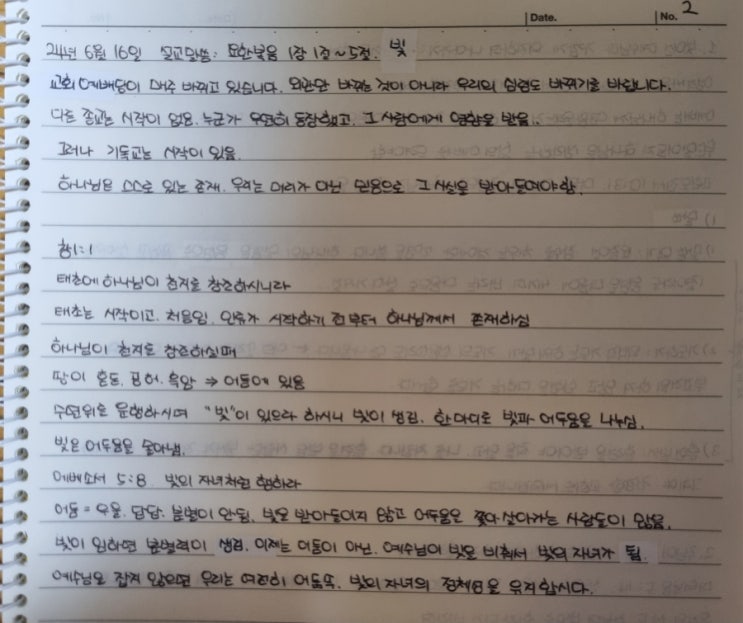 Date.
No. 2
24년 6월 16일 설교말씀: 요한복음 1장 1절~5절. 빛
교회 예배당이 매주 바뀌고 있습니다. 외관만 바뀌는 것이 아니라 우리의 심령도 바뀌기를 바랍니다.
다른 종교는 시작이 없음. 누군가 우연히 등장했고, 그 사람에게 영향을 받음..
그러나 기독교는 시작이 있음.
하나님은 스스로 있는 존재. 우리는 머리가 아닌 믿음으로 그 사실을 받아들여야함.
창1:1
태초에 하나님이 천지를 창조하시니라
태초는 시작이고, 처음임. 인류가 시작하기 전부터 하나님께서 존재하심
하나님이 천지를 창조하실때
땅이 혼돈. 공허. 흑암 ⇒ 어둠에 있음
수면위를 운행하시며 "빛"이 있으라 하시니 빛이 생김. 한마디로 빛과 어두움을 나누심.
빛은 어두움을 몰아냄.
에베소서 5:8. 빛의 자녀처럼 행하라
어둠 = 우울. 답답. 분별이 안됨. 빛을 받아들이지 않고 어두움을 쫓아 살아가는 사람들이 많음.
빛이 임하면 분별력이 생김. 이제는 어둠이 아닌. 예수님이 빛을 비춰서 빛의 자녀가 됨.
예수님을 잡지 않으면 우리는 여전히 어둠속. 빛의 자녀의 정체성을 유지합시다.